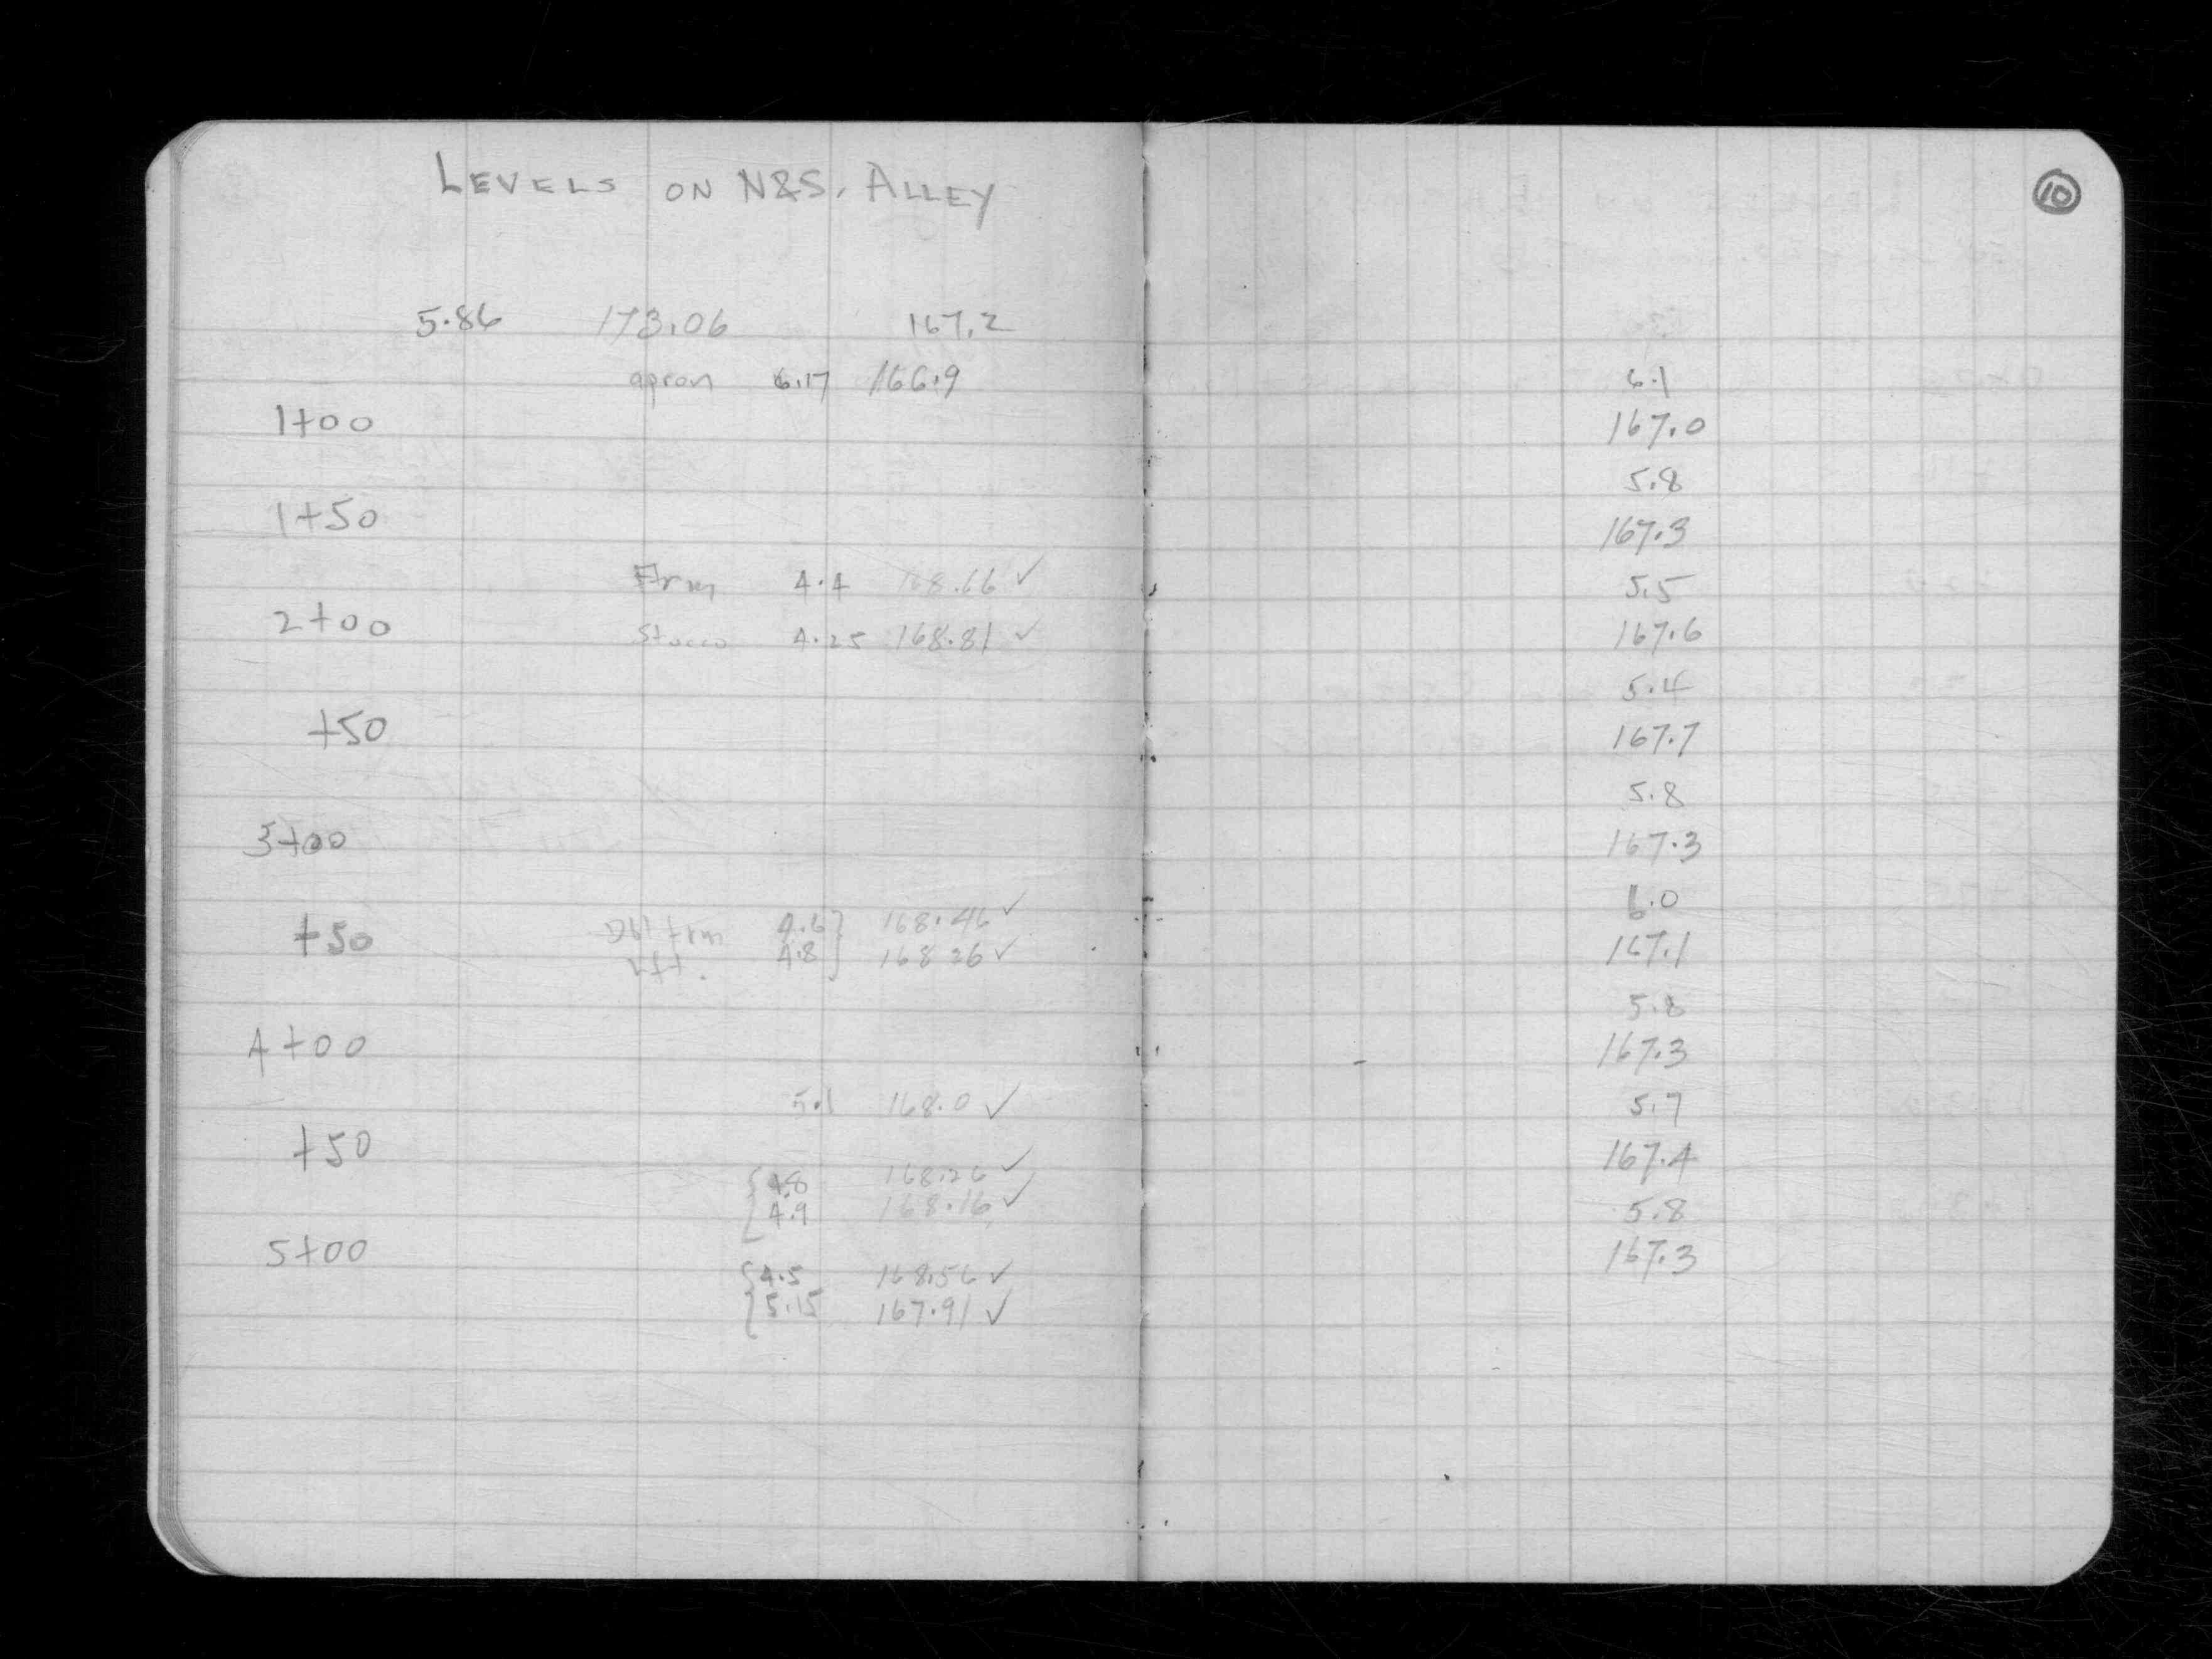 LEVELS ON N&S. ALLEY
5.86 173.06 167.2
apron 6.17 166.9
1+00
1+50
Frm 4.4 168.66 ✓
2+00
Stucco 4.25 168.81 ✓
+50
3+00
+50 Dbl frm 4.6 } 168.46 ✓
4.8 } 168.26 ✓
4+00
5.1 168.0 ✓
+50
{ 4.8 168.26 ✓
4.9 168.16 ✓
5+00
{ 4.5 168.56 ✓
5.15 167.91 ✓
10
6.1
167.0
5.8
167.3
5.5
167.6
5.4
167.7
5.8
167.3
6.0
167.1
5.8
167.3
5.7
167.4
5.8
167.3